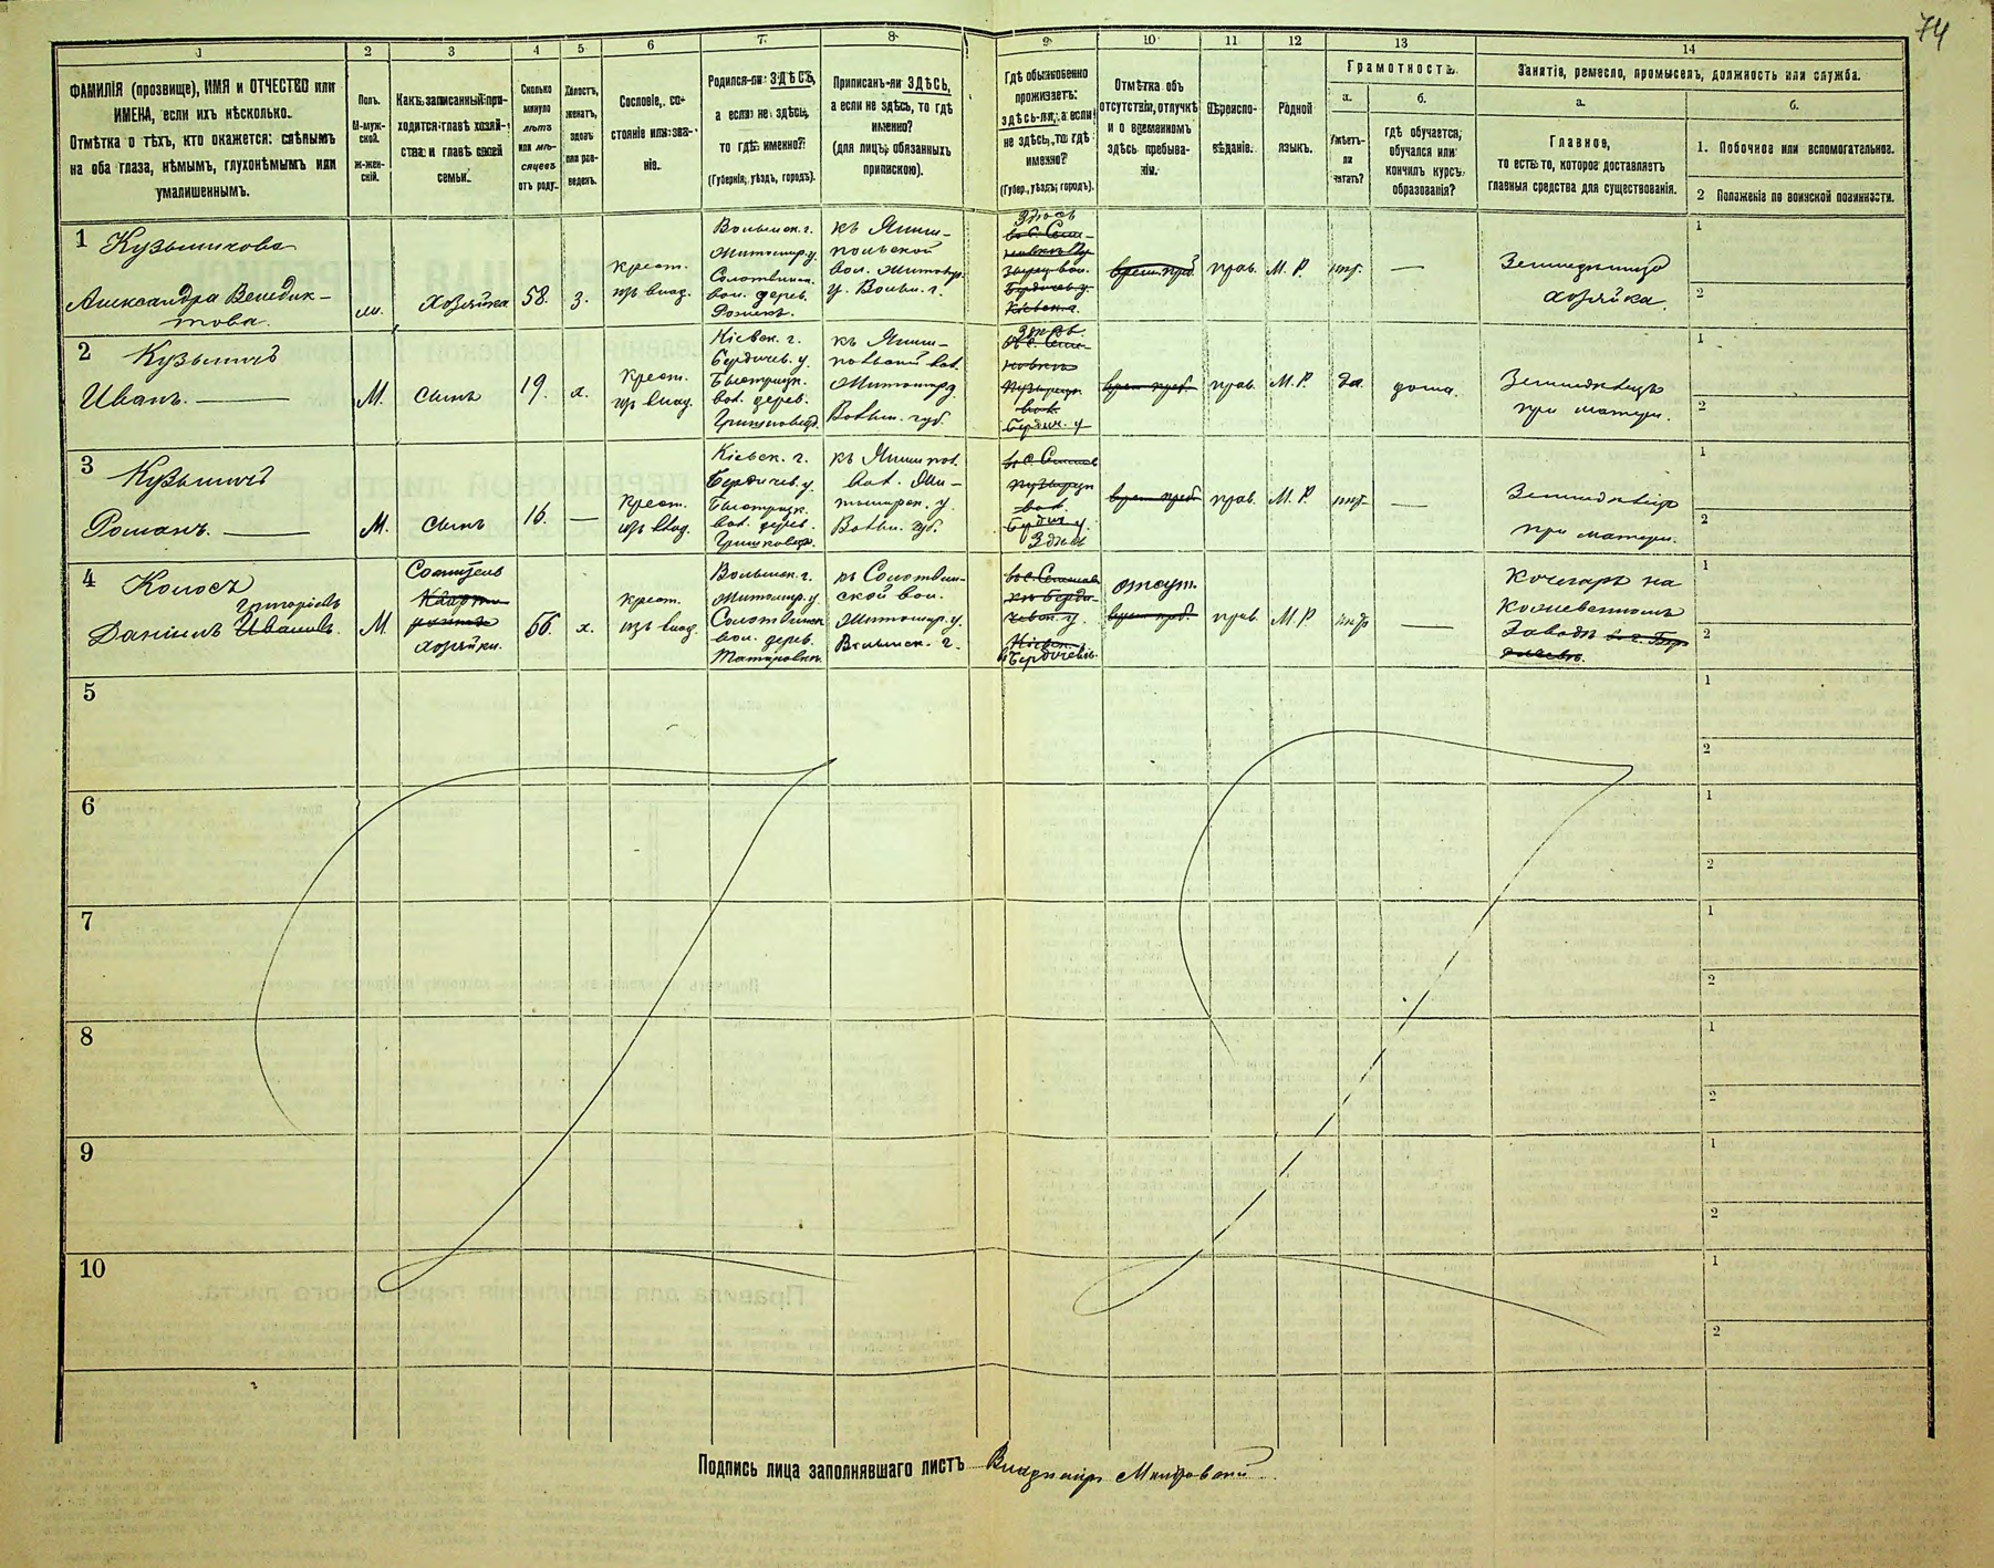 74
1
2
3
4
5
6
7
8
9
10
11
12
13
14
ФАМИЛІЯ (прозвище), ИМЯ и ОТЧЕСТВО или
ИМЕНА, если ихъ нѣсколько.
Отмѣтка о тѣхъ, кто окажется: слѣпымъ
на оба глаза, нѣмымъ, глухонѣмымъ или
умалишеннымъ.
Полъ.
М-муж-
ской.
ж-жен-
скій.
Какъ записанный при-
ходится главѣ хозяй-
ства и главѣ своей
семьи.
Сколько
минуло
лѣтъ
или мѣ-
сяцевъ
отъ роду.
Холостъ,
женатъ,
вдовъ
или раз-
веденъ.
Сословіе, со-
стояніе или зва-
ніе.
Родился-ли ЗДѢСЬ,
а если не здѣсь,
то гдѣ именно?
(Губернія, уѣздъ, городъ).
Приписанъ-ли ЗДѢСЬ,
а если не здѣсь, то гдѣ
именно?
(для лицъ, обязанныхъ
припискою).
Гдѣ обыкновенно
проживаетъ:
здѣсь-ли, а если
не здѣсь, то гдѣ
именно?
(Губер., уѣздъ, городъ).
Отмѣтка объ
отсутствіи, отлучкѣ
и о временномъ
здѣсь пребыва-
ніи.
Вѣроиспо-
вѣданіе.
Родной
языкъ.
Грамотность.
а.
Умѣетъ-
ли
читать?
б.
гдѣ обучается,
обучался или
кончилъ курсъ
образованія?
Занятіе, ремесло, промыселъ, должность или служба.
а.
Главное,
то есть то, которое доставляетъ
главныя средства для существованія.
б.
1. Побочное или вспомогательное.
2 Положеніе по воинской повинности.
1
Александра Венедик-
това
Хозяйка
58.
з.
крест.
изъ влад.
Волынск. г.
Житомир. у.
Солотвинск.
вол. дерев.
къ Яниш-
польской
вол. Житомр.
у. Волын. г.
Здесь
прав.
М. Р.
нѣт.
—
хозяйка.
1
2
2
Кузьмичъ
Иванъ. —
М.
сынъ
19.
х.
Крест.
изъ влад.
Кіевск. г.
Бердичев. у.
Быстрицк.
вол. дерев.
къ Яниш-
польской вол.
Житомир у
Волын. губ.
Бердич. у
прав.
М. Р.
да.
дома.
Земледѣлецъ
при матери.
1
2
3
Кузьмичъ
Романъ. —
М.
сынъ
16.
—
Крест.
изъ влад.
Кіевск. г.
Бердичев. у.
Быстрицк.
вол. дерев.
къ Янишпол.
вол. Жи-
томирск. у.
Волын. губ.
вол.
Бердич. у.
Здесь
прав.
М. Р.
нѣт.
—
Земледѣлецъ
при матери.
1
2
4
Колосъ
Григоріевъ
Даніилъ Ивановъ.
М.
хозяйки.
х.
крест.
изъ влад.
Волынск. г.
Житомир. у.
Солотвинск.
вол. дерев.
къ Солотвин-
ской вол.
Житомир. у.
Волынск. г.
Кіевск.
въ Бердичевѣ.
отсут.
прав.
М. Р
нѣт
—
Кочегаръ на
Кожевенномъ
Заводѣ
1
2
5
1
2
6
1
2
7
1
2
8
1
2
9
1
2
10
1
2
Подпись лица заполнявшаго листъ Владиміръ